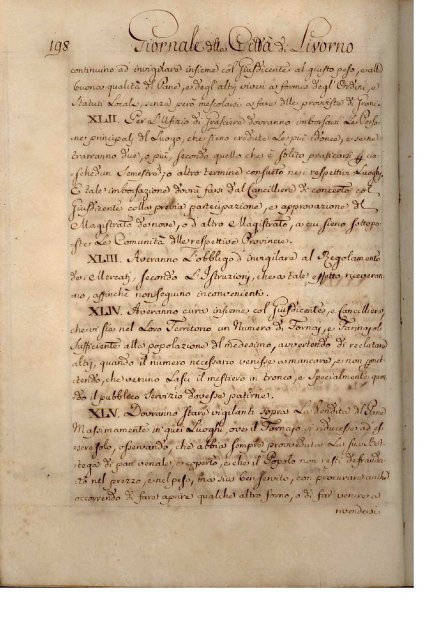 198 Giornale della Città di Livorno
continuino ad invigilare insieme col Giusdicente al giusto peso, e alla
buona qualità di Pane, e degl'altri viveri a forma degl'Ordini, e
Statuti Locali, senza però mescolarsi a fare delle provviste di Grani.
XLII. Per l'Ufizio di Grascieri dovranno imborsarsi Le Perso-
ne principali del Luogo, che sieno credute Le più idonee, e se ne
trarranno due, o più, secondo quello che è solito praticarsi
scheduno Semestre, o altro termine consueto nei respettivi Luoghi.
E tale imborsazione dovrà farsi dal Cancelliere di concerto col
Giusdicente colla previa partecipazione, e approvazione del
Magistrato de nove, o d'altro Magistrato, a cui sieno sottopo-
ste Le Comunità delle respettive Provincie.
XLIII. Averanno L'obbligo d'invigilare al Regolamento
dei Mercati, secondo L'Istruzioni, che a tale effetto riceveran-
no, affinché non seguino inconvenienti.
XLIV. Averanno cura insieme col Giusdicente, e Cancelliere,
che vi sia nel Loro Territorio un Numero di Fornaj, e Farinajoli
sufficiente alla popolazione del medesimo, avvertendo di reclutare
altri, quando il numero necessario venisse a mancare, e non permet-
tendo, che veruno Lasci il mestiero in tronco, e specialmente quan-
do il pubblico Servizio dovesse patirne.
XLV. Dovranno stare vigilanti sopra La Vendita del Pane
Massimamente in quei Luoghi, ove il Fornajo si riducesse ad es-
sere solo, osservando, che abbia sempre provveduta La sua Bot-
tega di pan venale, e coperto, e che il Popolo non resti defrauda-
to nel prezzo, e nel peso, ma sia ben servito, con procurare anche
occorrendo di fare aprire qualche altro forno, o di far venire a